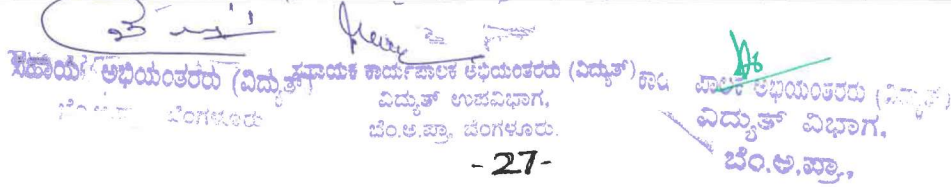 ಸಹಾಯಕ ಅಭಿಯಂತರರು (ವಿದ್ಯುತ್)
ಬೆಂಗಳೂರು
ಸಹಾಯಕ ಕಾರ್ಯಪಾಲಕ ಅಭಿಯಂತರರು (ವಿದ್ಯುತ್)
ವಿದ್ಯುತ್ ಉಪವಿಭಾಗ,
ಬೆಂ.ಅ.ಪ್ರಾ, ಬೆಂಗಳೂರು.
ಪಾಲಕ ಅಭಿಯಂತರರು (ವಿದ್ಯುತ್)
ವಿದ್ಯುತ್ ವಿಭಾಗ,
ಬೆಂ.ಅ.ಪ್ರಾ,
-27-